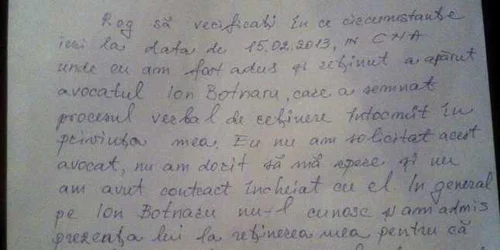 Rog să verificați în ce circumstanțe
ieri la data de 15.02.2013, în CNA
unde eu am fost adus și reținut a apărut
avocatul Ion Botnaru, care a semnat
procesul verbal de reținere întocmit în
privința mea. Eu nu am solicitat acest
avocat, nu am dorit să mă apere și nu
am avut contract încheiat cu el. In general
pe Ion Botnaru nu-l cunosc și am admis
prezența lui la reținerea mea pentru că